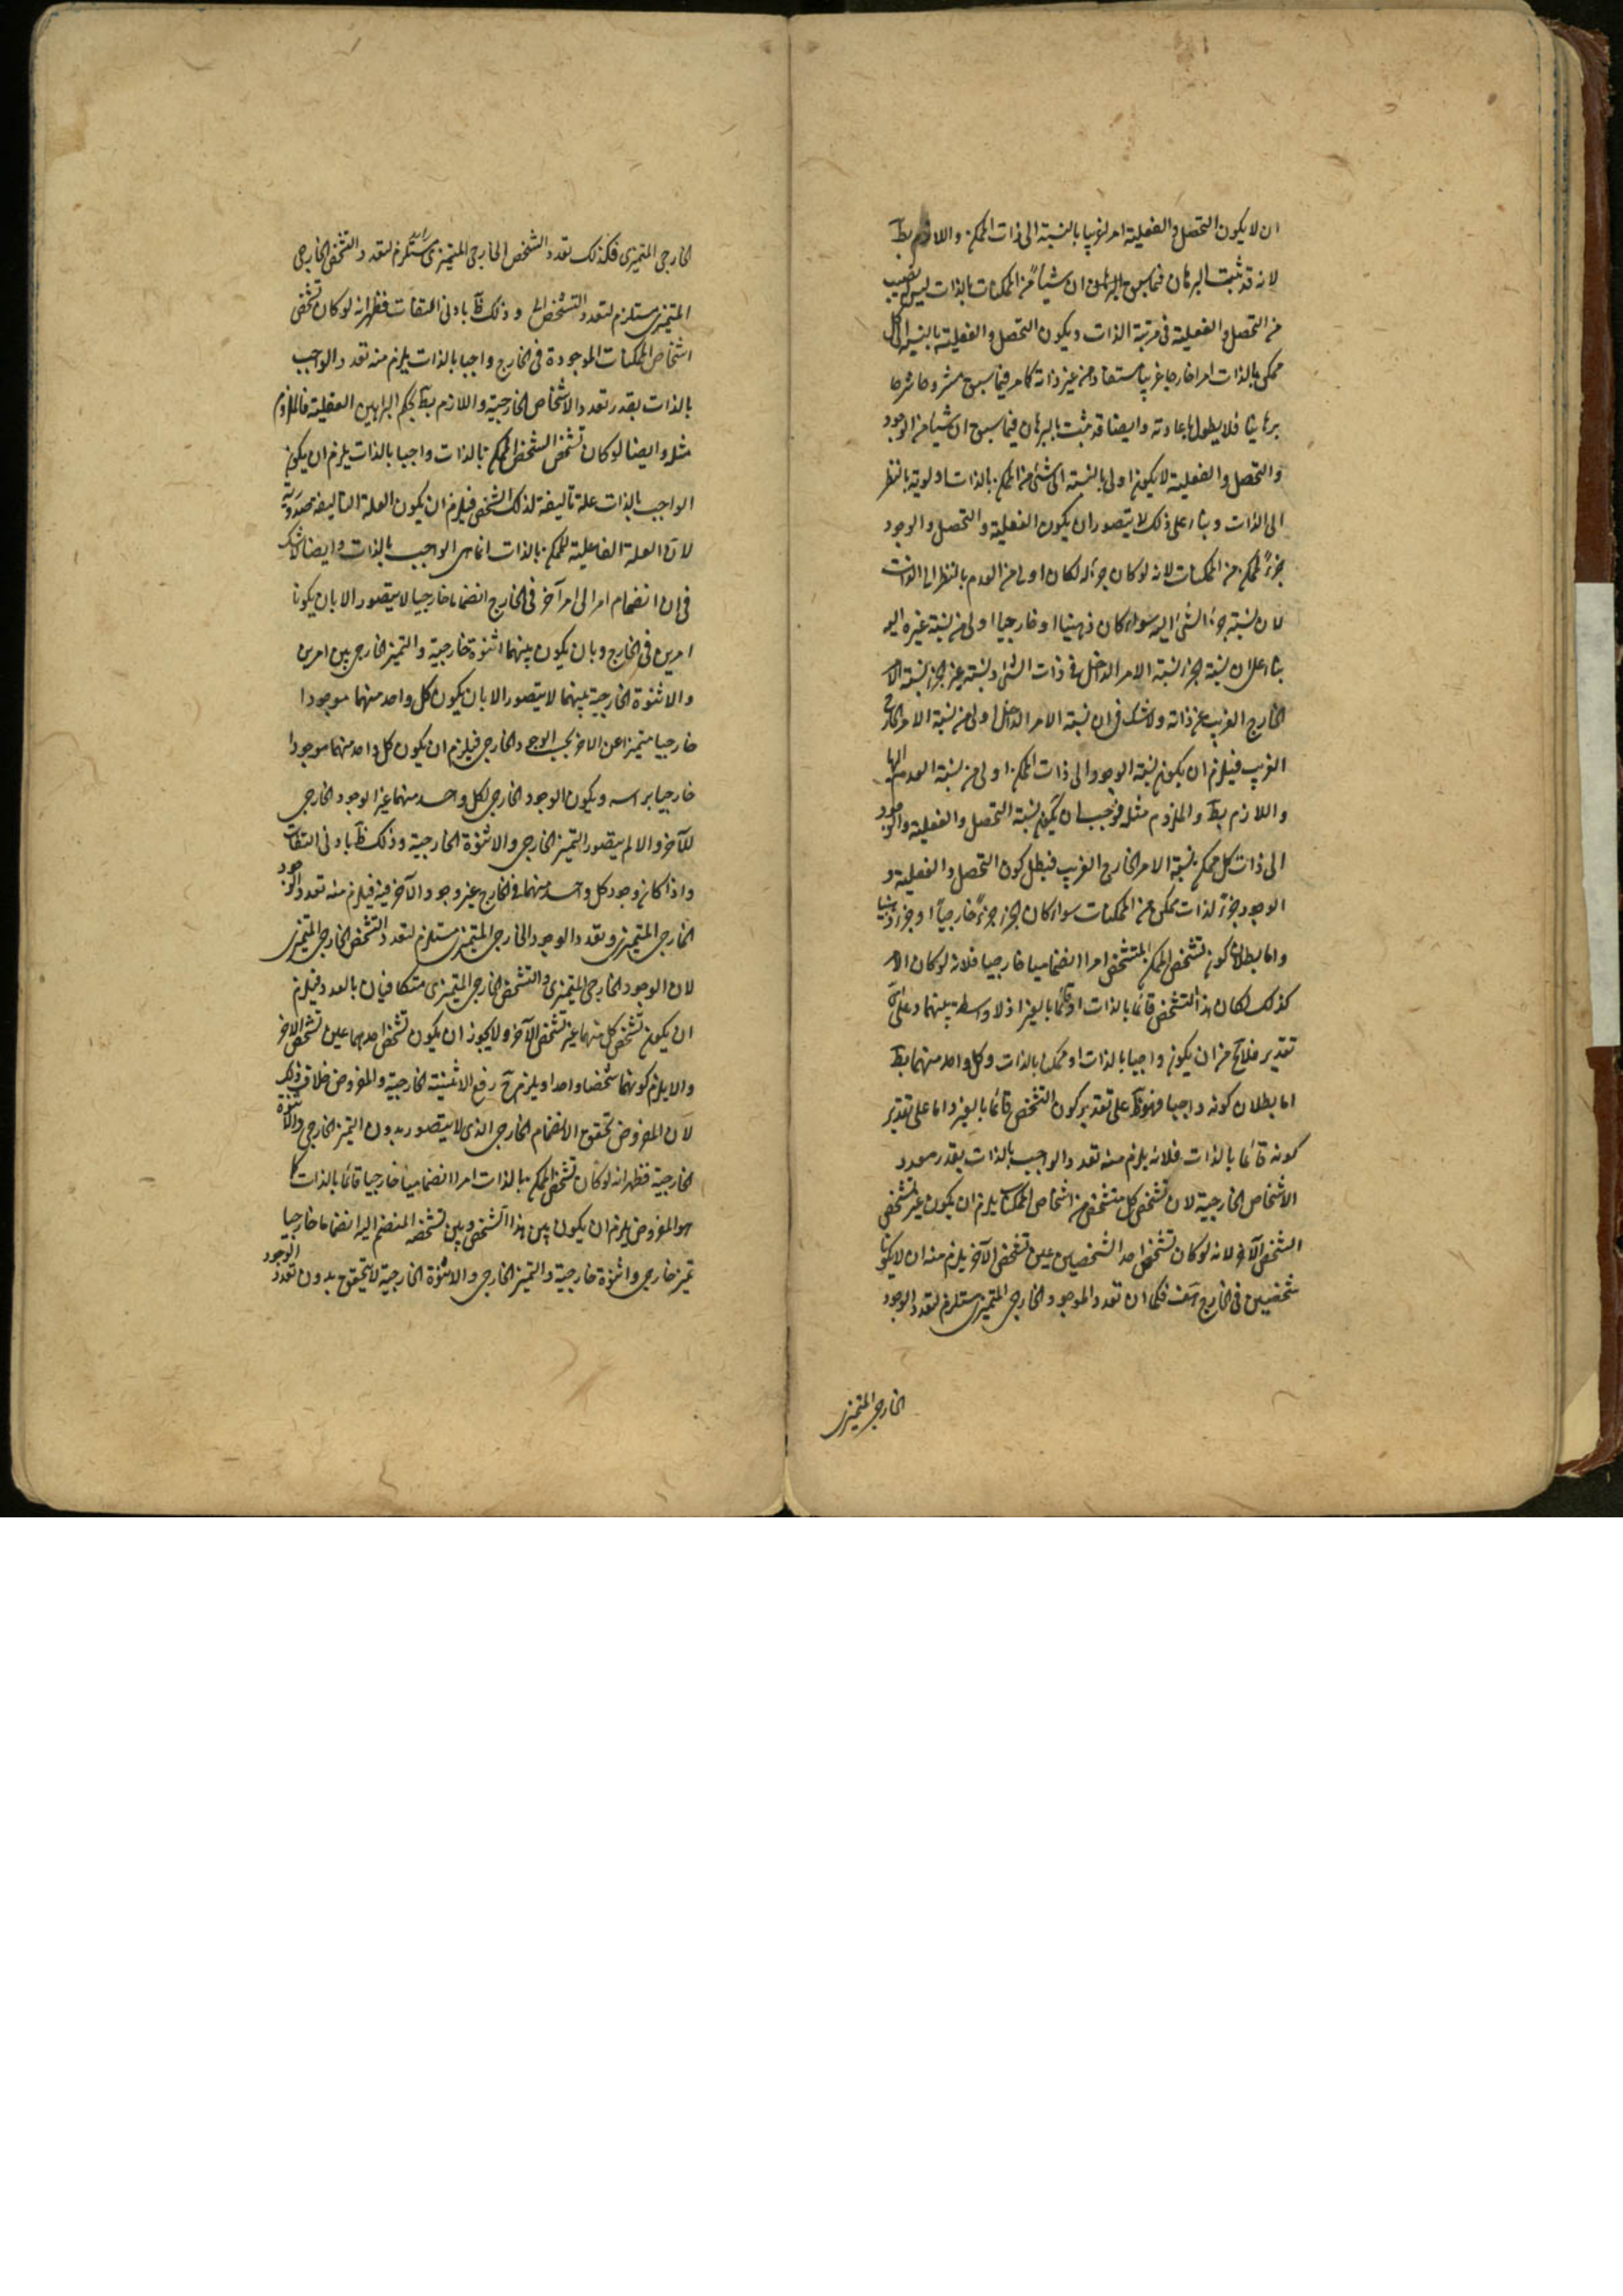 ان لا يكون التحصل والفعلية امرا غريبا بالنسبة الى ذات الممكن واللازم بط
لانه قد ثبت البرهان فيما سبق ان شيئا من الممكنات بالذات ليس له نصيب
من التحصل والفعلية فى مرتبة الذات ويكون التحصل والفعلية بالنسبة الى كل
ممكن بالذات امرا خارجا غريبا مستفادا من غير ذاته كما مر فيما سبق مشروحا شرحا
برهانيا فلا يطول باعادته وايضا قد ثبت بالبرهان فيما سبق ان شيئا من الوجود
والتحصل والفعلية لا يكون اولى بالنسبة الى شئ من الممكن بالذات اولوية بالنظر
الى الذات وبناء على ذلك لا يتصور ان يكون الفعلية والتحصل والوجود
جزءً لممكن من الممكنات لانه لو كان جزءا له لكان اولى من العدم بالنظر الى الذات
لان نسبة جزء الشئ اليه سواء كان ذهنيا او خارجيا اولى من نسبة غيره اليه
بناء على ان نسبة الجزء نسبة الامر الداخل فى ذات الشئ ونسبة غير الجزء نسبة الامر
الخارج الغريب عن ذاته ولا شك فى ان نسبة الامر الداخل اولى من نسبة الامر الخارج
الغريب فيلزم ان يكون نسبة الوجود الى ذات الممكن اولى من نسبة العدم اليها
واللازم بط والملزوم مثله فوجب ان يكون نسبة التحصل والفعلية والوجود
الى ذات كل ممكن نسبة الامر الخارج الغريب فبطل كون التحصل والفعلية و
الوجود جزءً لذات ممكن من الممكنات سواء كان الجزء جزءً خارجياً او جزء ذهنيا
واما بطلان كون تشخص الممكن المتشخص امرا انضماميا خارجيا فلانه لو كان الامر
كذلك لكان هذا التشخص قائما بالذات او قائما بالغير اذ لا واسطة بينهما وعلى كل
تقدير فلا يخ من ان يكون واجبا بالذات او ممكنا بالذات وكل واحد منهما بط
اما بطلان كونه واجبا فهو ظ على تقدير كون التشخص قائما بالغير واما على تقدير
كونه قائما بالذات فلانه يلزم منه تعدد الواجب بالذات بقدر معدد
الاشخاص الخارجية لان تشخص كل متشخص من اشخاص الممكنات يلزم ان يكون غير تشخص
الشخص الآخر لانه لو كان تشخص احد الشخصين عين تشخص الآخر يلزم منه ان لا يكونا
شخصين فى الخارج هف فكما ان تعدد الموجود الخارجى المتميزى مستلزم لتعدد الوجود
الخارجى المتميزى
الخارجى المتميزى فكذلك تعدد الشخص الخارجى المتميزى مستلزم لتعدد التشخص الخارجى
المتميزى مستلزم لتعدد التشخص وذلك ظ بادنى التفات فظهر انه لو كان تشخص
اشخاص الممكنات الموجودة فى الخارج واجبا بالذات يلزم منه تعدد الواجب
بالذات بقدر تعدد الاشخاص الخارجية واللازم بط بحكم البراهين العقلية فالملزوم
مثله وايضا لو كان تشخص الشخص الممكن بالذات واجبا بالذات يلزم ان يكون
الواجب بالذات علة تاليفة لذلك الشخص فيلزم ان يكون العلة التاليفه صدورية
لان العلة الفاعلية للممكن بالذات انما هى الواجب بالذات وايضا لا شك
فى ان انضمام امر الى امر آخر فى الخارج انضماما خارجيا لا يتصور الا بان يكونا
امرين فى الخارج وبان يكون بينهما اثنوة خارجية والتميز الخارجى بين امرين
والاثنوة الخارجية بينهما لا يتصور الا بان يكون كل واحد منهما موجودا
خارجيا متميزا عن الاخر بحسب الوجود الخارجى فيلزم ان يكون كل واحد منهما موجودا
خارجيا براسه ويكون الوجود الخارجى لكل واحد منهما غير الوجود الخارجى
للآخر والا لم يتصور التميز الخارجى والاثنوة الخارجية وذلك ظ بادنى التفات
واذا كان وجود كل واحد منهما فى الخارج غير وجود الآخر فيه فيلزم منه تعدد الوجود
الخارجى المتميزى وتعدد الوجود الخارجى المتميزى مستلزم لتعدد التشخص الخارجى المتميزى
لان الوجود الخارجى المتميزى والتشخص الخارجى المتميزى متكافيان بالعدد فيلزم
ان يكون تشخص كل منهما غير تشخص الآخر ولا يجوز ان يكون تشخص احدهما عين تشخص الاخر
والا يلزم كونهما شخصا واحدا ويلزم ح رفع الاثنينية الخارجية والمفروض خلاف ذلك
لان المفروض تحقق الانضمام الخارجى الذى لا يتصور بدون التميز الخارجى والاثنوة
الخارجية فظهر انه لو كان تشخص الممكن بالذات امرا انضماميا خارجيا قائما بالذات كما
هو المفروض يلزم ان يكون بين هذا التشخص وبين تشخصه المنضم اليه انضماما خارجيا
تميز خارجى واثنوة خارجية والتميز الخارجى والاثنوة الخارجية لا يتحقق بدون تعدد الوجود